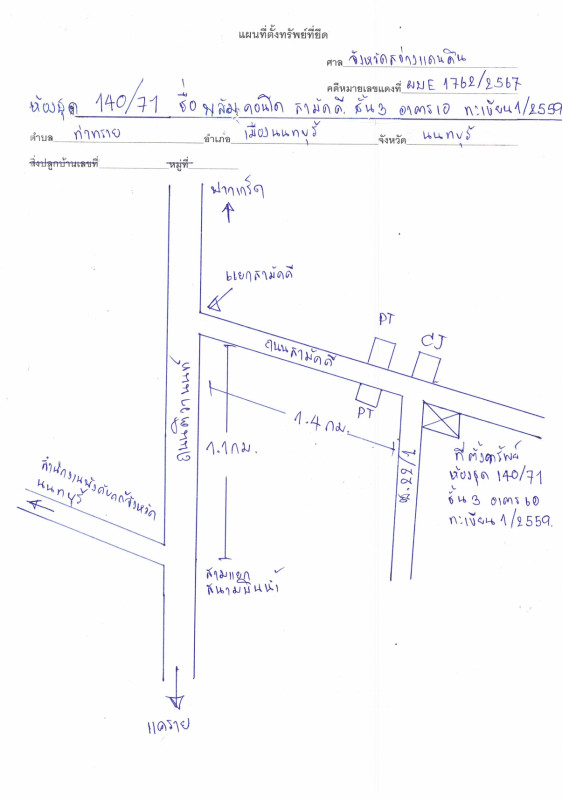 แผนที่ตั้งทรัพย์ที่ยึด
ศาล จังหวัดสว่างแดนดิน
คดีหมายเลขแดงที่ ผบE 1762/2567
ห้องชุด 140/71 ชื่อ พลัมคอนโด สามัคคี ชั้น 3 อาคาร เอ ทะเบียน 1/2559
ตำบล ท่าทราย อำเภอ เมืองนนทบุรี จังหวัด นนทบุรี
สิ่งปลูกบ้านเลขที่ หมู่ที่
ปากเกร็ด
แยกสามัคคี
PT
CJ
ถนนสามัคคี
PT
ถนนติวานนท์
1.4 กม.
1.1 กม.
ซ.22/1
ที่ตั้งทรัพย์
ห้องชุด 140/71
ชั้น 3 อาคาร เอ
ทะเบียน 1/2559.
สำนักงานบังคับคดีจังหวัด
นนทบุรี
สามแยก
สนามบินน้ำ
แคราย